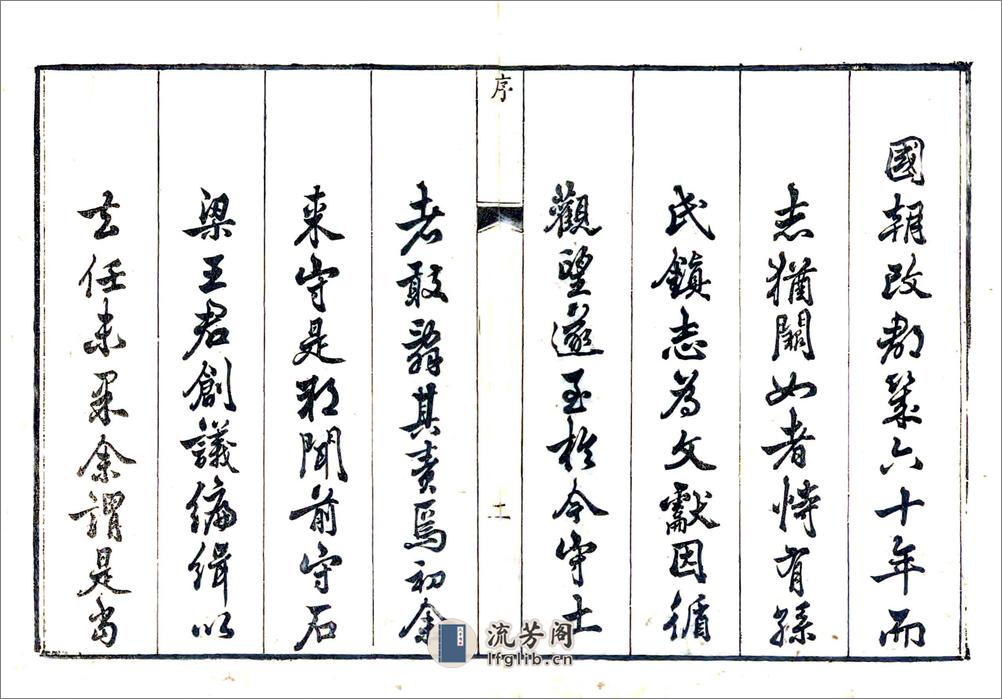 國朝改郡幾六十年而
志猶闕如者恃有孫
氏鎮志為文獻因循
觀望遂至於今守土
序
者敢辭其責焉初余
來守是邦聞前守石
梁王君創議編緝以
去任未果余謂是當
流芳阁
lfglib.cn